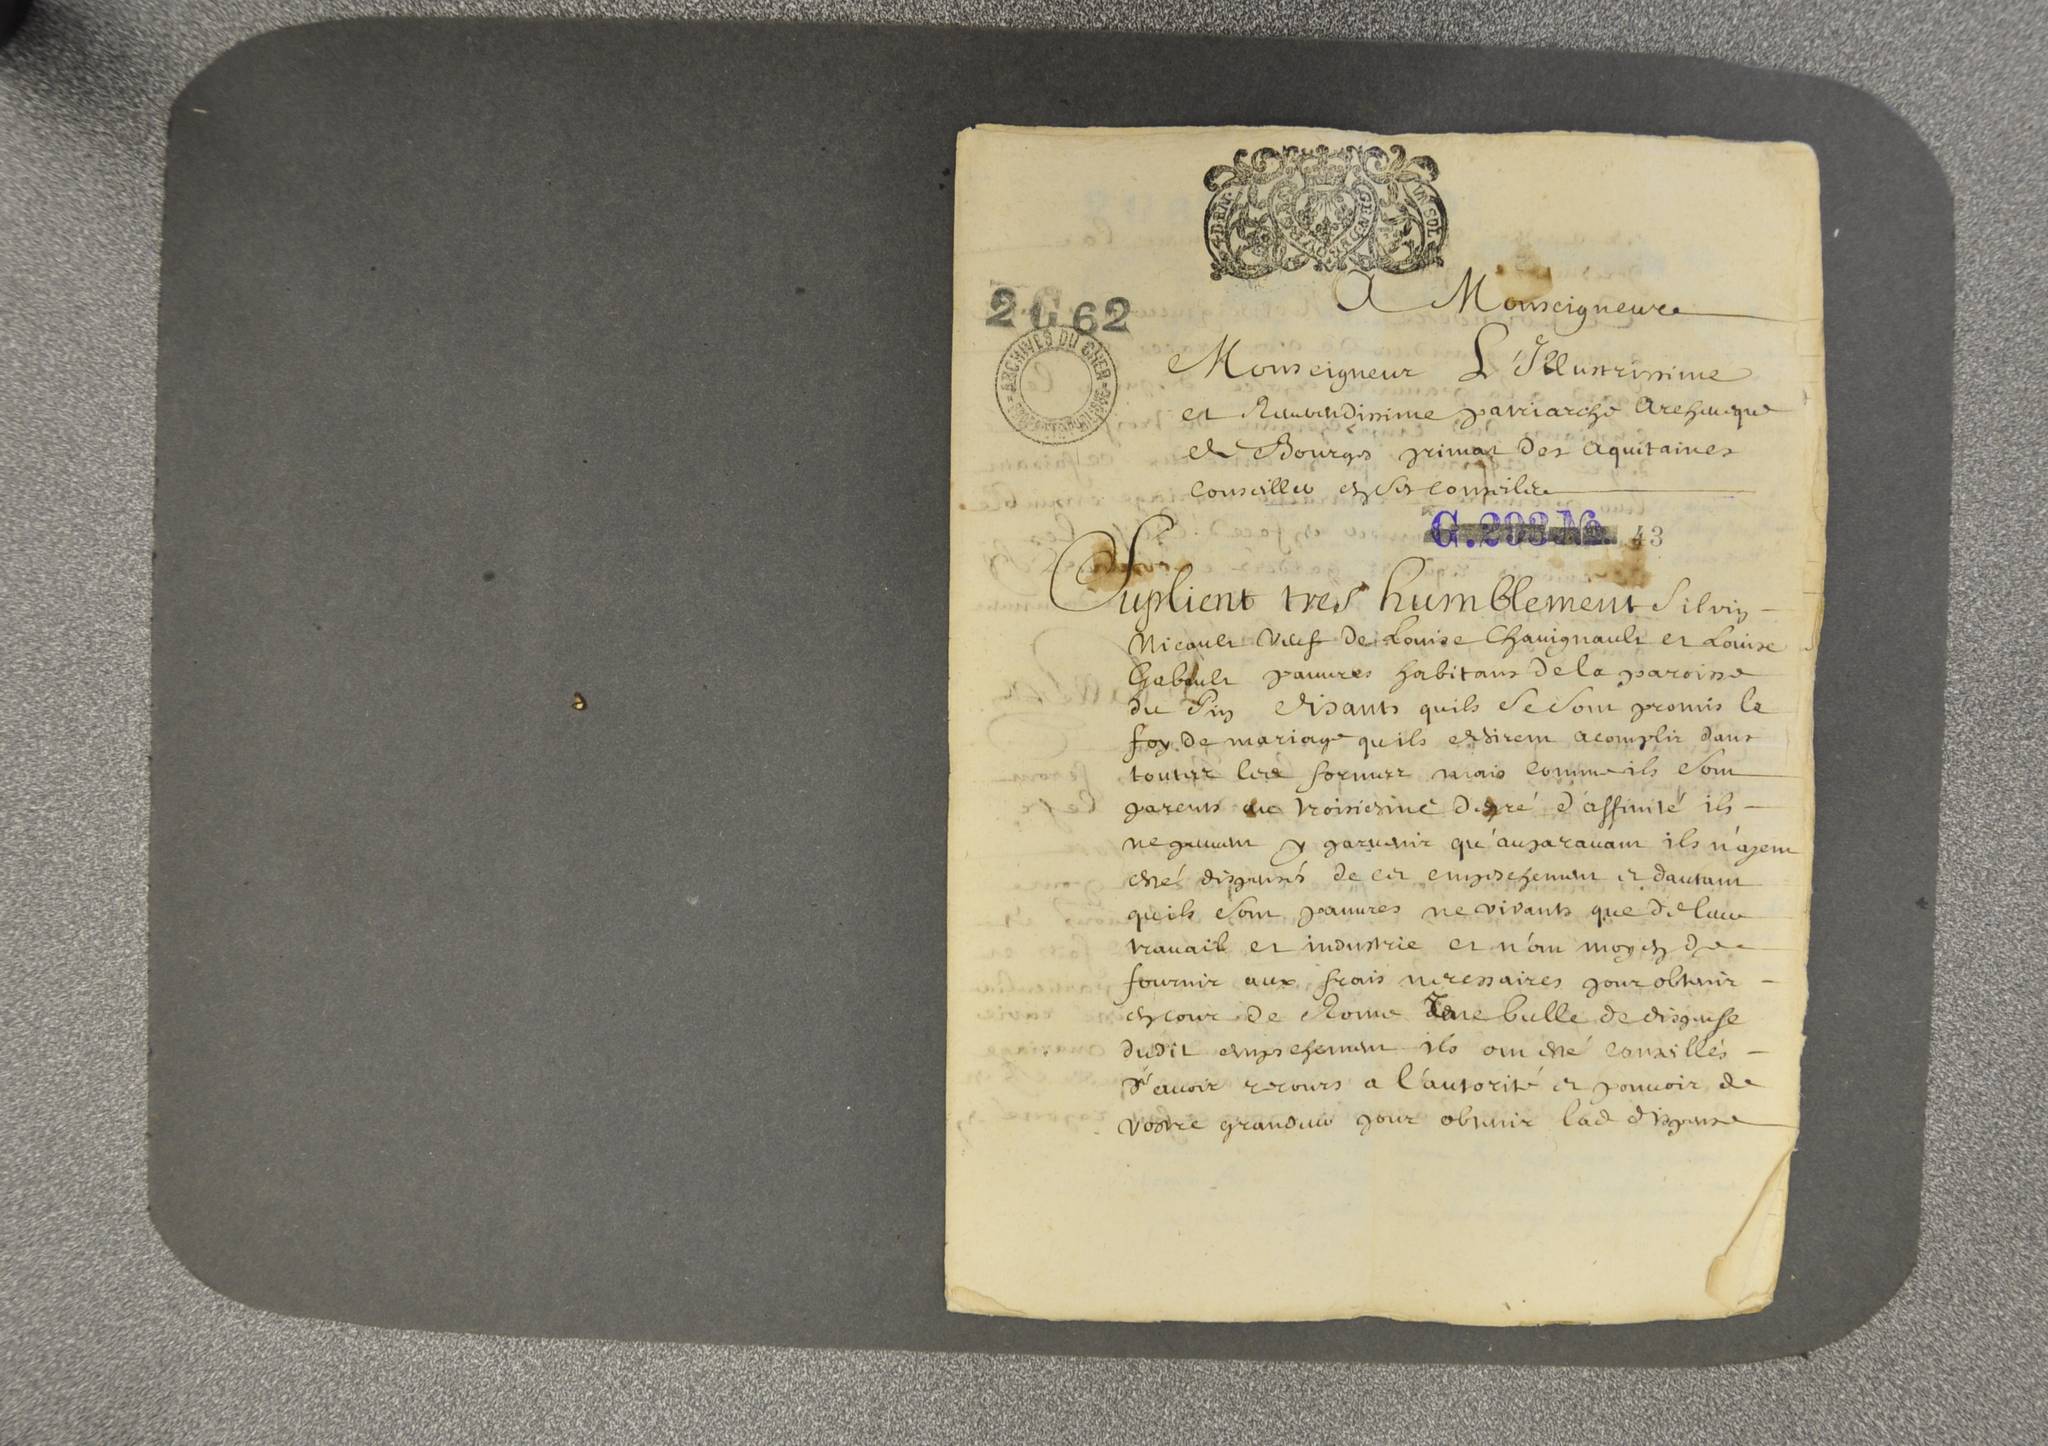 4. DEN.
GEN. D
IN. SOL
2 G 62
ARCHIVES DU CHER
A Monseigneur
Monseigneur L'Illustrissime
et Reuerendissime patriarche Archeuesque
de Bourges primat des Aquitaines
Conseiller en ses conseils
G. 293 No. 43
Suplient tres humblement Silvin
Nicault veuf de Louise Chauignault et Louise
Gabault pauures habitans de la paroisse
du Pin disants quils se sont promis la
foy de mariage quils desirent acomplir dans
toutes les formes mais comme ils sont
parents au troisiesme degré d'affinité ils
ne peuuent y paruenir qu'auparauant ils n'ayent
esté dispensés de cet empeschement et dautant
quils sont pauures ne vivants que de leur
trauail et industrie et n'ont moyen de
fournir aux frais necessaires pour obtenir
en cour de Rome une bulle de dispense
dudit empeschement ils ont esté conseillés
d'auoir recours a l'autorité et pouuoir de
vostre grandeur pour obtenir lad dispense